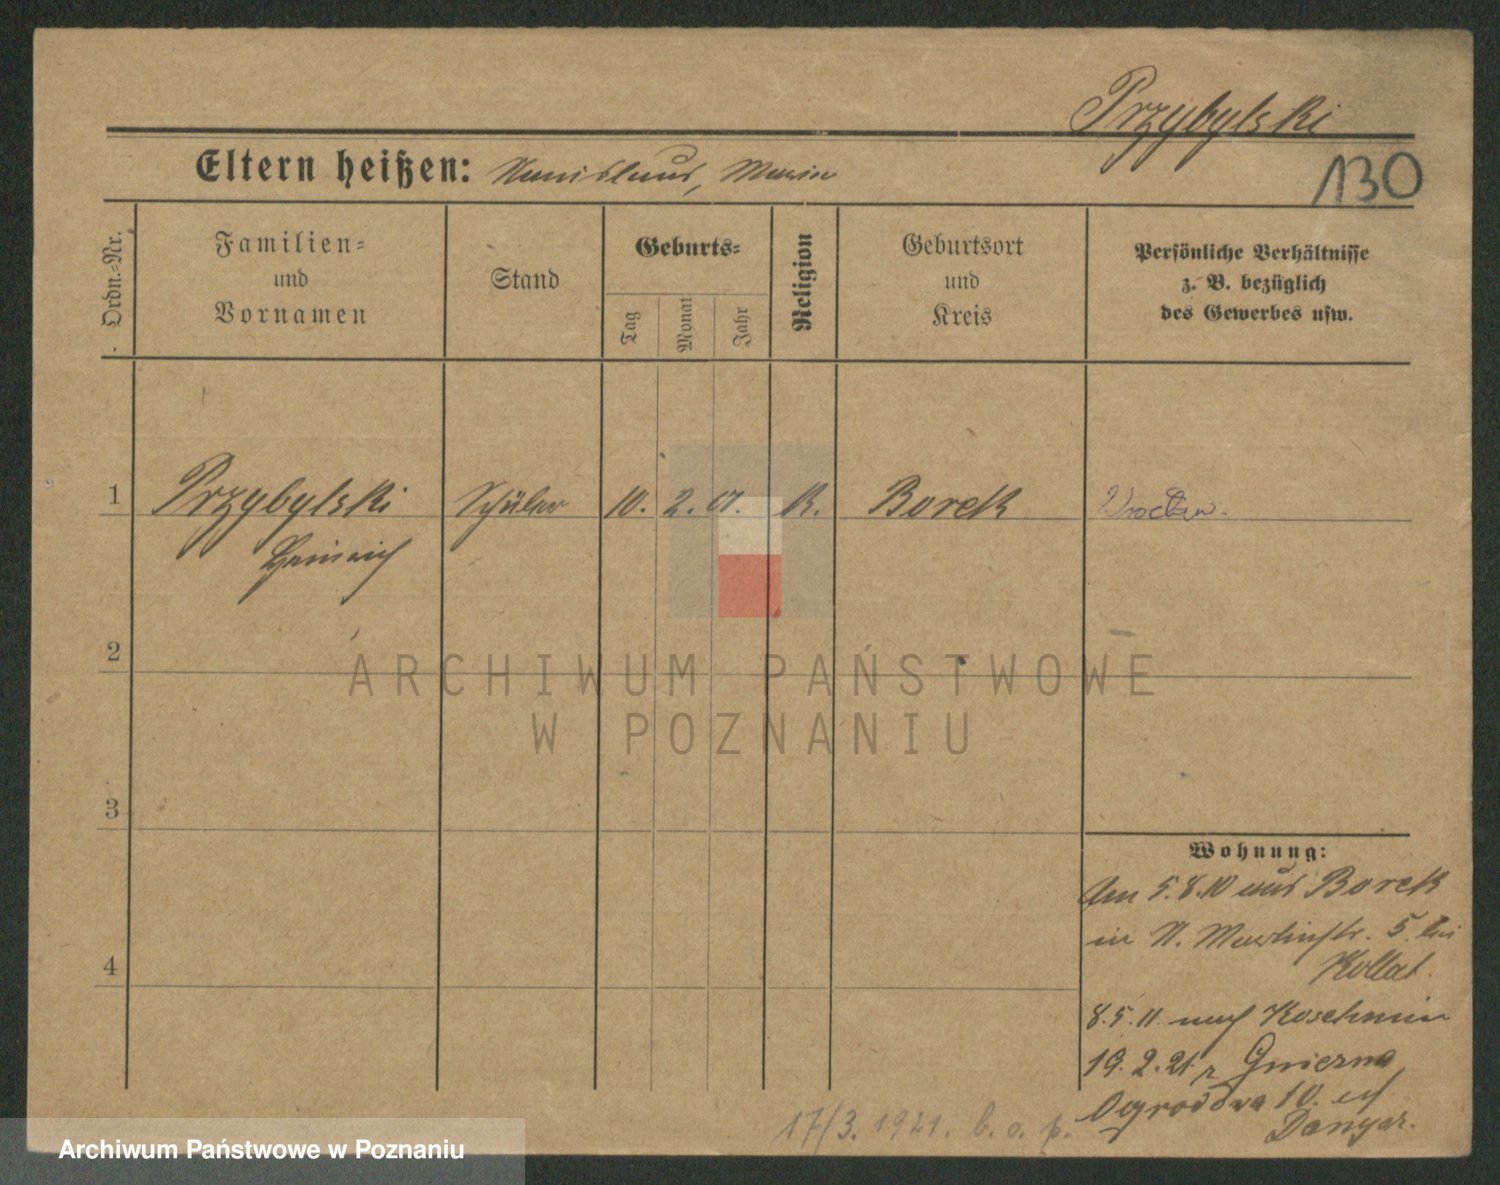 Przybylski
130
Eltern heißen: Stanislaus, Maria
Ordn.-Nr.
Familien-
und
Vornamen
Stand
Geburts-
Tag
Monat
Jahr
Religion
Geburtsort
und
Kreis
Persönliche Verhältnisse
z. B. bezüglich
des Gewerbes usw.
1 Przybylski Schüler 10. 2. 01. K. Borek
Heinrich
2
3
4
ARCHIWUM PAŃSTWOWE
W POZNANIU
Wohnung:
Am 5.8.10 aus Borek
in N. Martinstr. 5. bei
Kollat.
8.5.11. nach Koschmin
19.2.21. z Gniezna
Ogrodowa 10.
17/3. 1921. b. o. p.
Archiwum Państwowe w Poznaniu